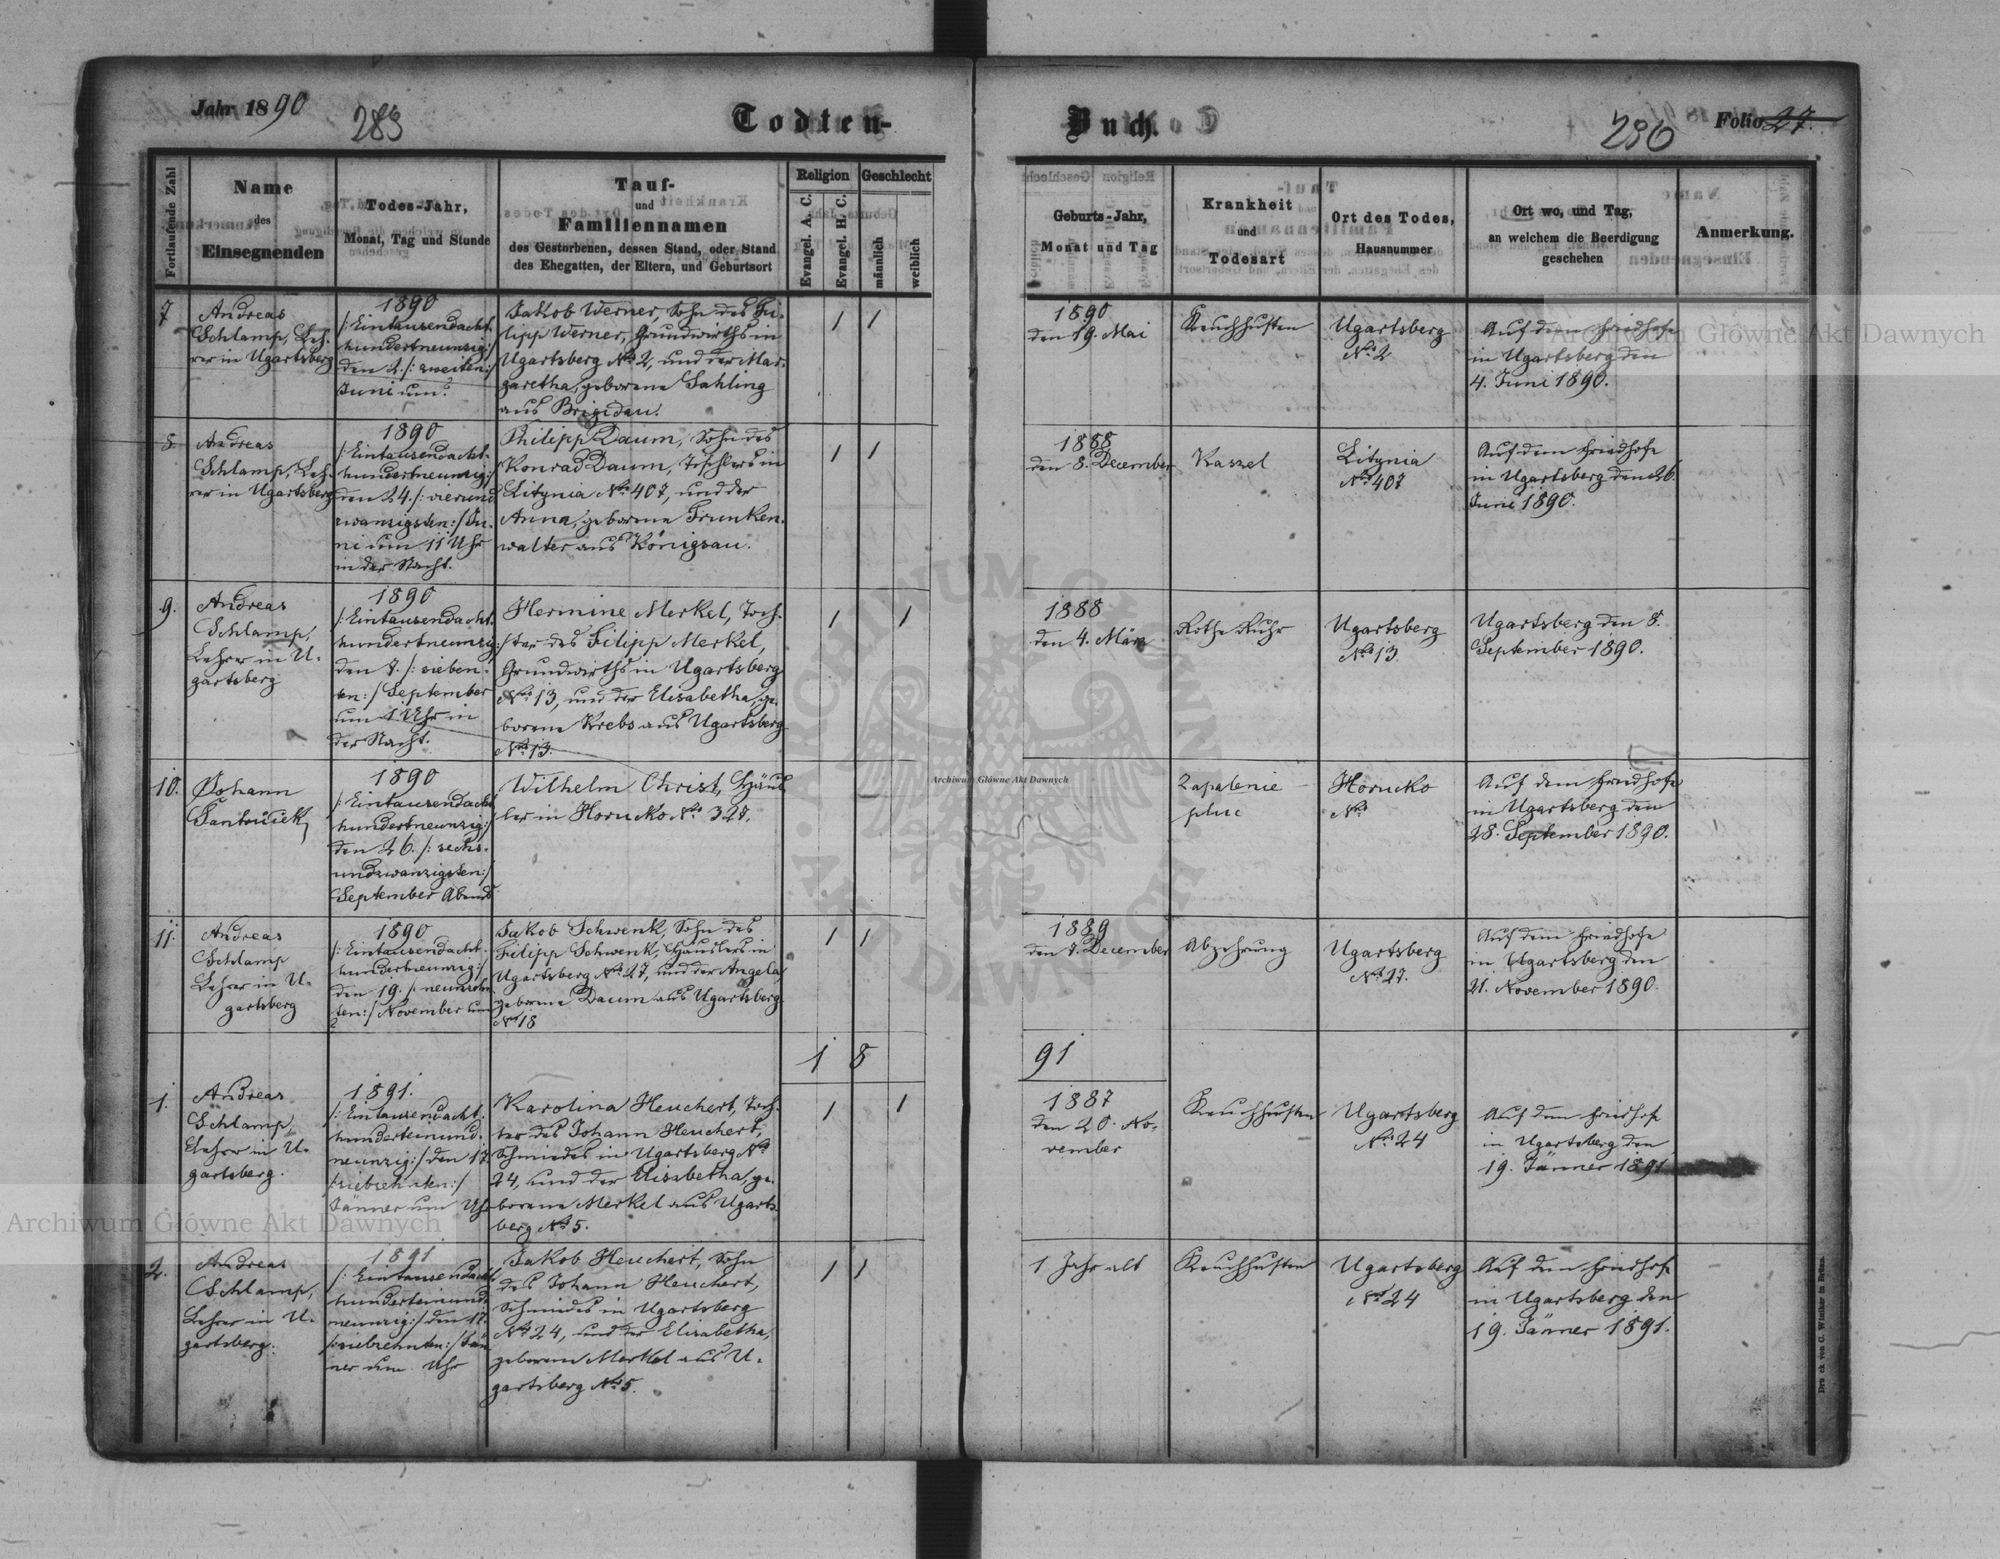 Jahr 1890
283
Todten-
Buch.
286
Folio 27.
Fortlaufende Zahl
Name
des
Einsegnenden
Todes-Jahr,
Monat, Tag und Stunde
Tauf-
und
Familiennamen
des Gestorbenen, dessen Stand, oder Stand
des Ehegatten, der Eltern, und Geburtsort
Religion
Evangel. A. C.
Evangel. H. C.
Geschlecht
männlich
weiblich
Geburts-Jahr,
Monat und Tag
Krankheit
und
Todesart
Ort des Todes,
Hausnummer
Ort wo, und Tag,
an welchem die Beerdigung
geschehen
Anmerkung.
7
Andreas
Schlamp, Leh-
rer in Ugartsberg
1890
/: Eintausendacht-
hundertneunzig :/
den 2. /: zweiten :/
Juni um ?
Jakob Werner, Sohn des Fi-
lipp Werner, Grundwirths in
Ugartsberg No 2, und der Mar-
garetha, geborene Sahling
aus Brigidau.
1 1
1890
den 19. Mai
Keuchhusten
Ugartsberg
No 2
Auf dem Friedhofe
in Ugartsberg den
4. Juni 1890.
8.
Andreas
Schlamp, Leh-
rer in Ugartsberg
1890
/: Eintausendacht-
hundertneunzig :/
den 24. /: vierund
zwanzigsten :/ Ju-
ni um 11 Uhr
in der Nacht.
Philipp Daum, Sohn des
Konrad Daum, Tischlers in
Litynia No 407, und der
Anna, geborene Trunken-
walter aus Königsau.
1 1
1888
den 8. December
Kaszel
Litynia
No 407
Auf dem Friedhofe
in Ugartsberg den 26.
Juni 1890.
9.
Andreas
Schlamp,
Lehrer in U-
gartsberg
1890
/: Eintausendacht-
hundertneunzig :/
den 7. /: sieben-
ten :/ September
um 1 Uhr in
der Nacht.
Hermine Merkel, Toch-
ter des Filipp Merkel,
Grundwirths in Ugartsberg
No 13, und der Elisabetha, ge-
borene Krebs aus Ugartsberg
No 13.
1 1
1888
den 4. März
Rothe Ruhr
Ugartsberg
No 13.
Ugartsberg den 8.
September 1890.
10.
Johann
1890
/: Eintausendacht
hundertneunzig :/
den 26. /: sechs-
undzwanzigsten :/
September Abends
Wilhelm Christ, Häus
ler in Horucko No 327.
Zapalenie
płuc
Horucko
No
Auf dem Friedhofe
in Ugartsberg den
28. September 1890.
11.
Andreas
Schlamp
Lehrer in U-
gartsberg
1890
/: Eintausendacht-
hundertneunzig :/
den 19. /: neunzehn
ten :/ November um
?
Jakob Schwenk, Sohn des
Filipp Schwenk, Häuslers in
Ugartsberg No 27, und der Angela,
geborene Daum aus Ugartsberg
No 18
1 1
1889
den 7. December
Abzehrung
Ugartsberg
No 27.
Auf dem Friedhofe
in Ugartsberg den
21. November 1890.
1 8
91
1.
Andreas
Schlamp,
Lehrer in U-
gartsberg.
1891.
/: Eintausendacht-
hunderteinund-
neunzig :/ den 17.
/: siebzehnten :/
Jänner um Uhr
Karolina Heuchert, Toch-
ter des Johann Heuchert,
Schmiedes in Ugartsberg No
24, und der Elisabetha, ge-
borene Merkel aus Ugarts-
berg No 5.
1 1
1887
den 20. No-
vember
Keuchhusten
Ugartsberg
No 24
Auf dem Friedhofe
in Ugartsberg den
19. Jänner 1891
2.
Andreas
Schlamp,
Lehrer in U-
gartsberg.
1891
/: Eintausendacht
hunderteinund-
neunzig :/ den 17.
/: siebzehnten :/ Jän
ner um Uhr
Jakob Heuchert, Sohn
des Johann Heuchert,
Schmiedes in Ugartsberg
No 24, und der Elisabetha,
geborene Merkel aus U-
gartsberg No 5.
1 1
1 Jahr alt
Keuchhusten
Ugartsberg
No 24
Auf dem Friedhofe
in Ugartsberg den
19. Jänner 1891.
Druck von C. Winiker in Brünn.
Archiwum Główne Akt Dawnych
Archiwum Główne Akt Dawnych
Archiwum Główne Akt Dawnych
ARCHIWUM GŁÓWNE AKT DAWNYCH